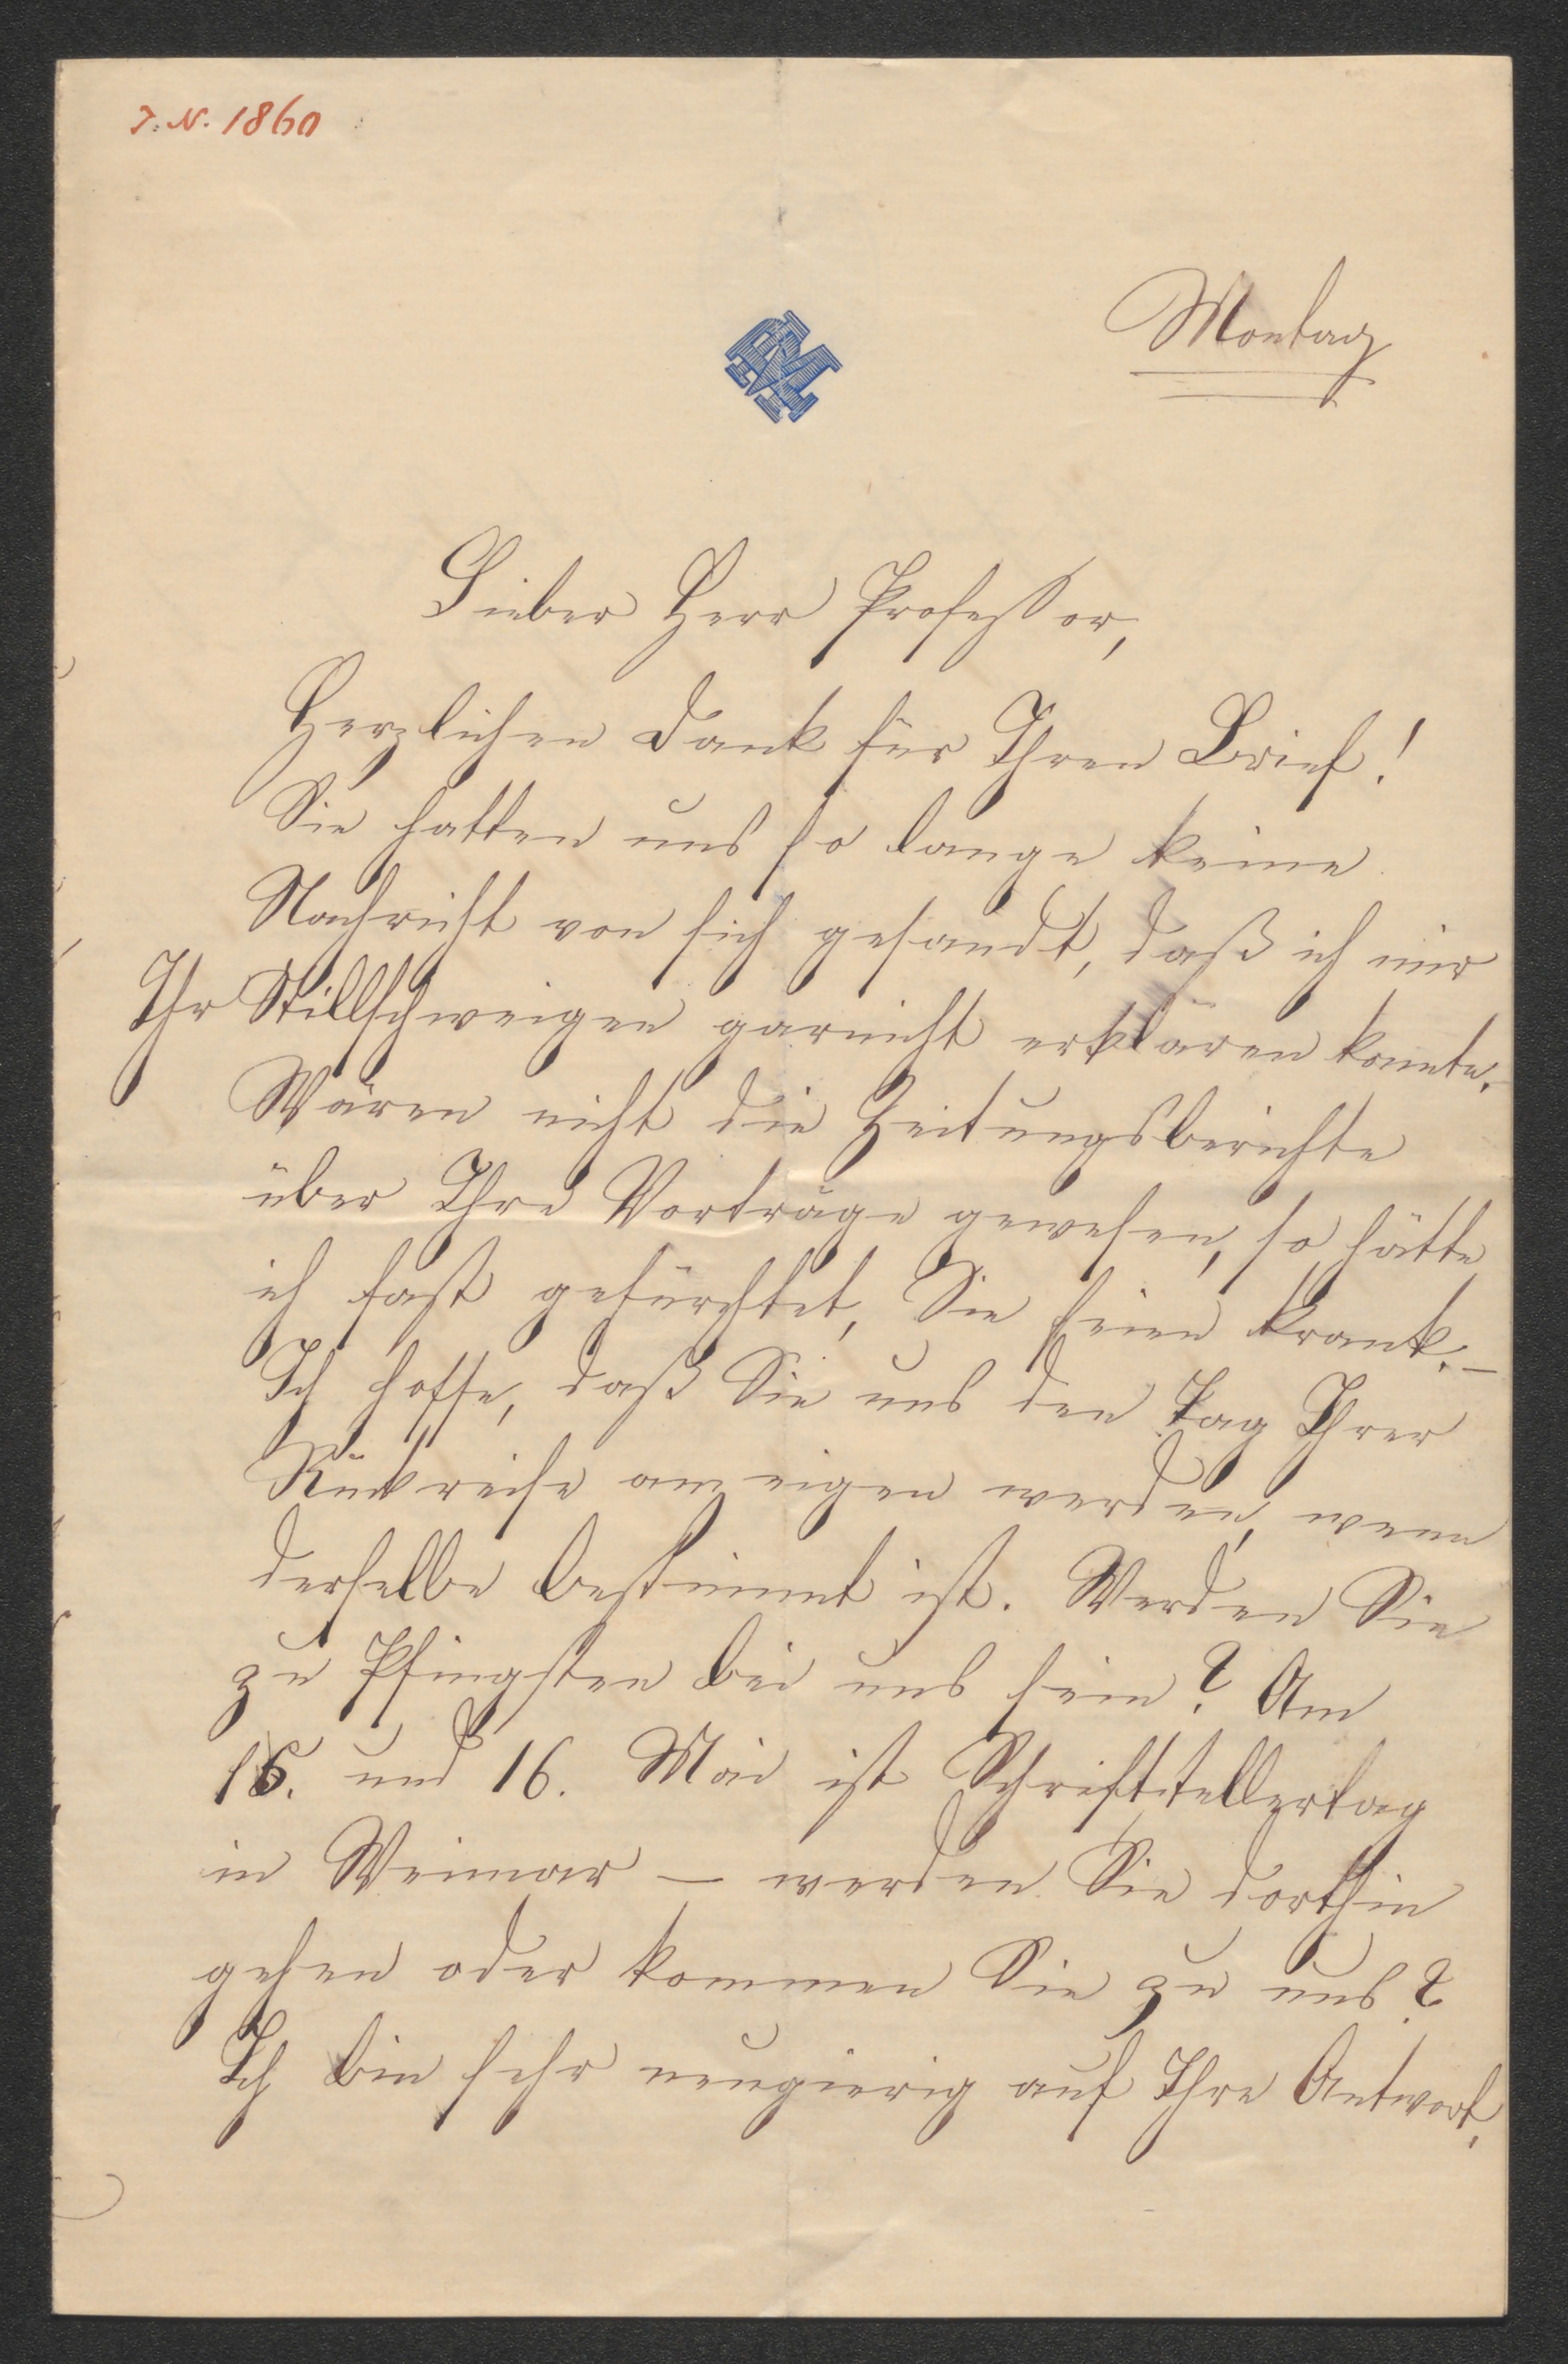 J. N. 1860
Montag
Lieber Herr Professor,
Herzlichen Dank für Ihren Brief!
Sie hatten uns so lange keine
Nachricht von sich gesandt, daß ich mir
Ihr Stillschweigen garnicht erklären konnte.
Wären nicht die Zeitungsberichte
über Ihre Vorträge gewesen, so hätte
ich fast gefürchtet, Sie seien krank. –
Ich hoffe, daß Sie uns den Tag Ihrer
Rückreise anzeigen werden, wenn
derselbe bestimmt ist. Werden Sie
zu Pfingsten bei uns sein? Am
15. und 16. Mai ist Schriftstellertag
in Weimar – werden Sie dorthin
gehen oder kommen Sie zu uns?
Ich bin sehr neugierig auf Ihre Antwort,